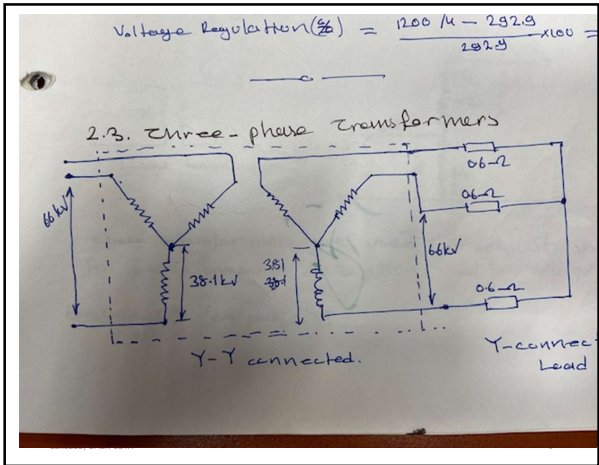 Voltage Regulation (%) = 1200/4 - 292.9
292.9 ×100 =
2.3. Three-phase Transformers
0.6Ω
0.6Ω
66kV
38.1kV
3.81
66kV
0.6Ω
Y-Y connected.
Y-connec
Load